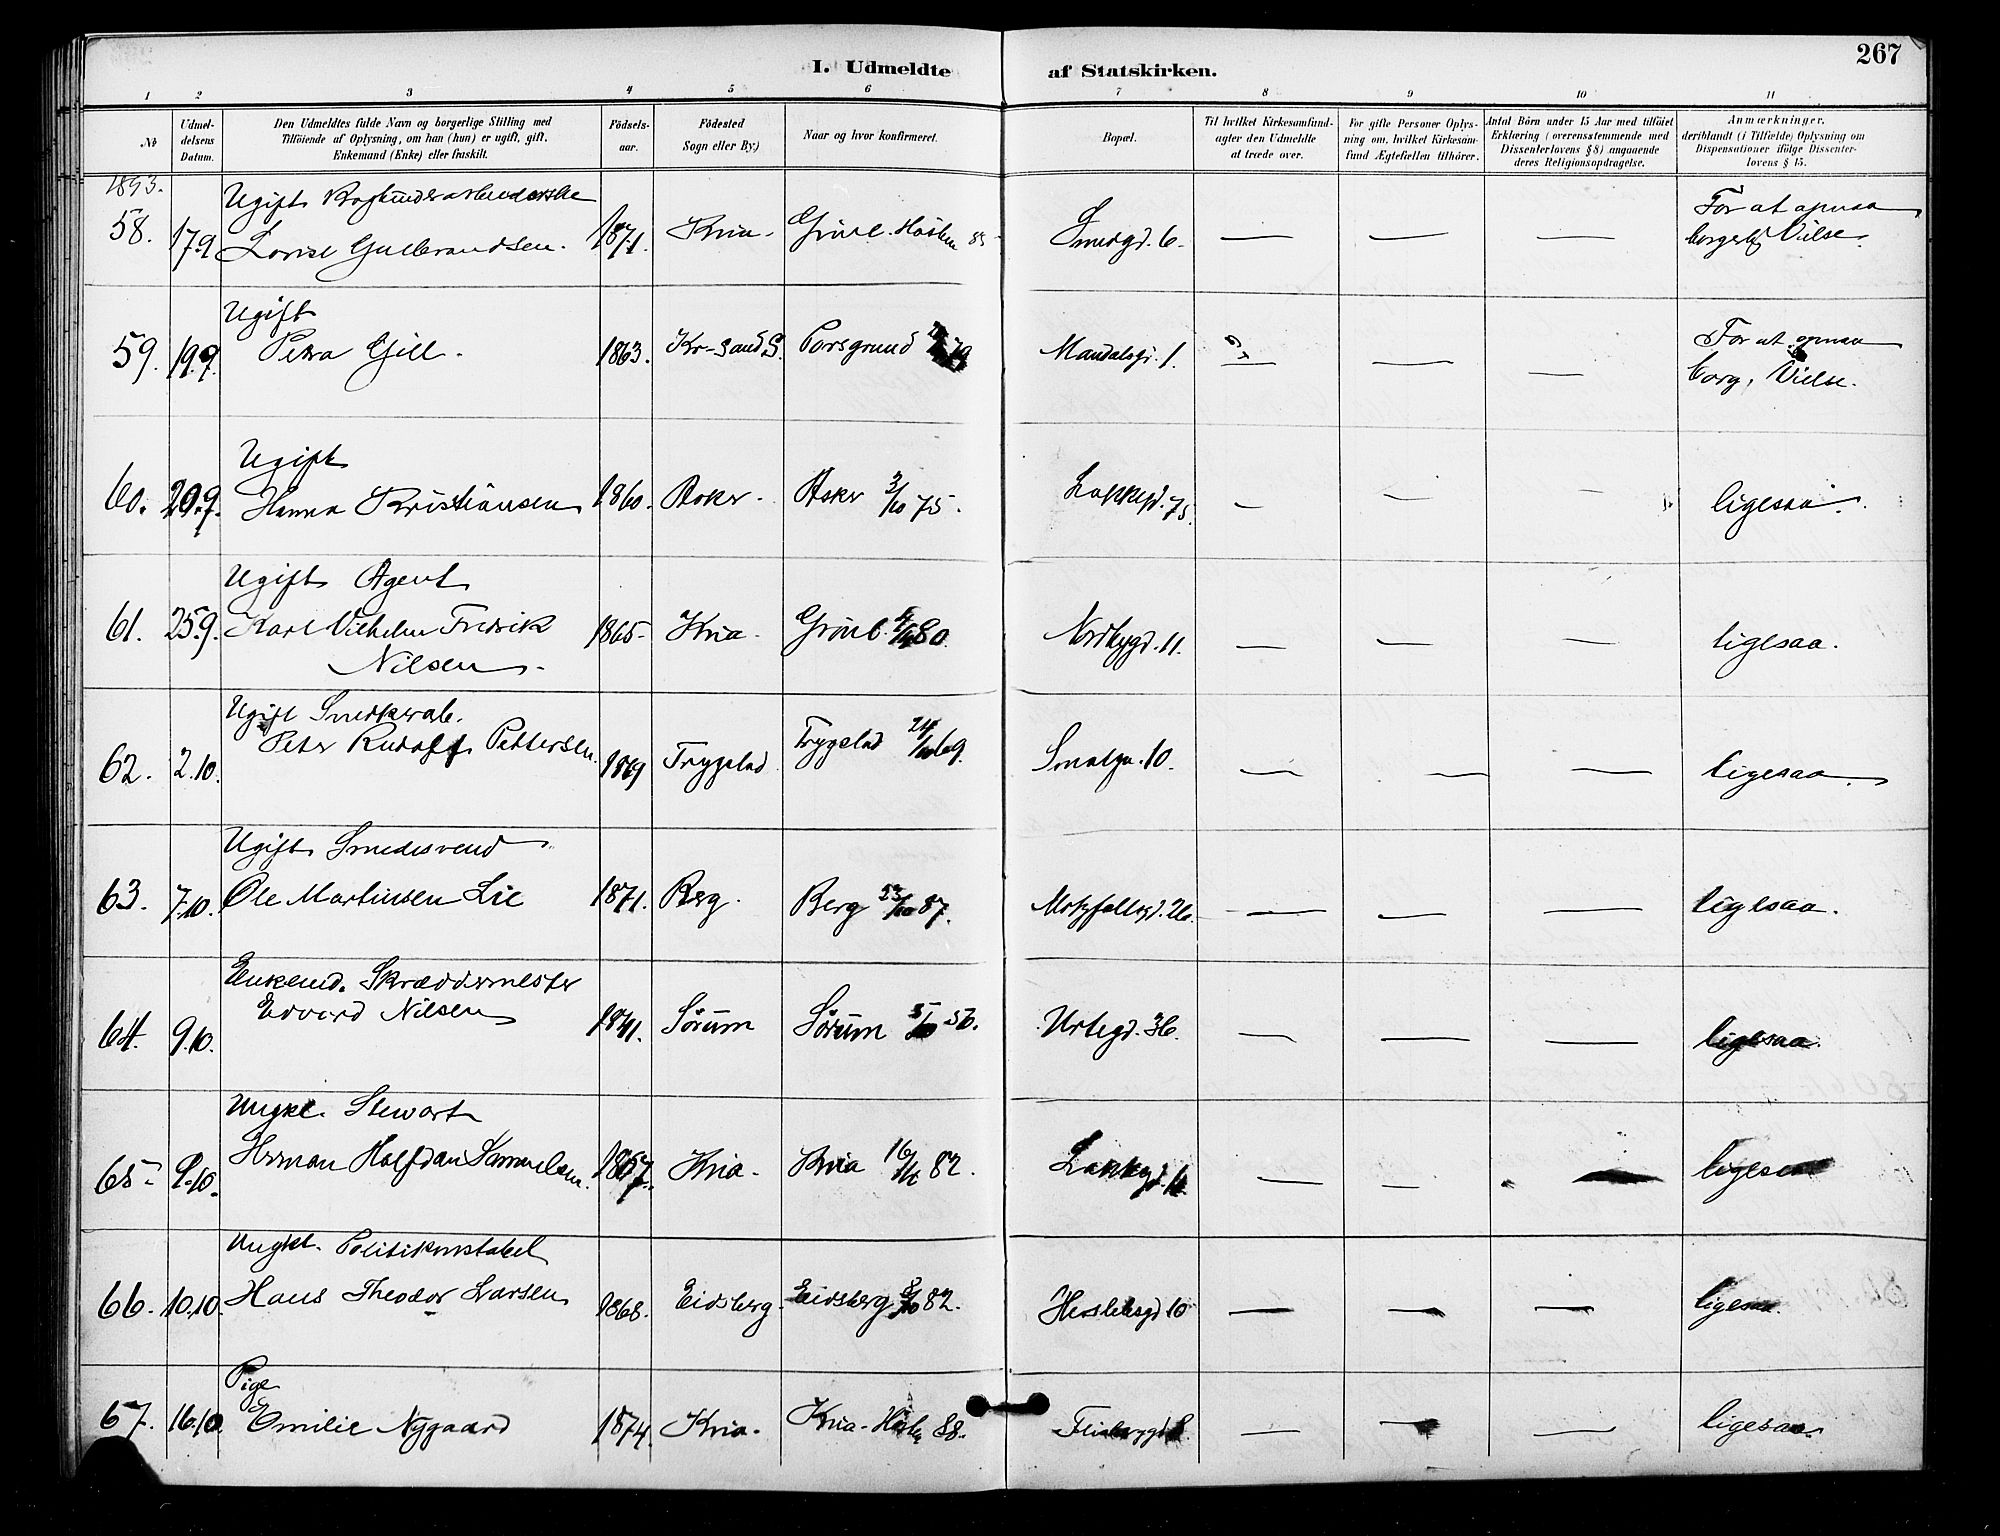 267
I. Udmeldte af Statskirken.
1 2 3 4 5 6 7 8 9 10 11
No
Udmeldelsens Datum.
Den Udmeldtes fulde Navn og borgerlige Stilling med
Tilføiende af Oplysning, om han (hun) er ugift, gift,
Enkemand (Enke) eller fraskilt.
Fødselsaar.
Fødested
Sogn eller By.)
Naar og hvor konfirmeret.
Bopæl.
Til hvilket Kirkesamfund
agter den Udmeldte
at træde over.
For gifte Personer Oplys-
ning om, hvilket Kirkesam-
fund Ægtefællen tilhører.
Antal Børn under 15 Aar med tilføiet
Erklæring (overensstemmende med
Dissenterlovens § 8) angaaende
deres Religionsopdragelse.
Anmærkninger,
deriblandt (i Tilfælde) Oplysning om
Dispensationer ifølge Dissenter-
lovens § 15.
1893.
58. 17.9 Ugift
Lovise Gulbrandsen. 1871. Kria. Grønl. Høsten 85 Smedgd. 6. — — — For at opnaa
borgerlig Vielse.
59. 19.9. Ugift
Petra Gill. 1863. Kr-Sand S. Porsgrund 79 Mandalsg. 1. — — — For at opnaa
borg. Vielse.
60. 20.9. Ugift
Hanna Kristiansen 1860. Asker. Asker 3/10 75. Lakkegd. 75. — — — ligesaa.
61. 25.9. Ugift Agent
Karl Vilhelm Fredrik
Nilsen. 1865. Kria. Grønl. 80. Nordbygd. 11. — — — ligesaa.
62. 2.10. Ugift Snedkerab.
Peter Rudolf Pettersen. Trygstad Trygstad 24/10 69. Smalga. 10. — — — ligesaa.
63. 7.10. Ugift Smedesvend
Ole Martinsen Lie 1871. Berg. Berg 23/10 87. Motzfeltsgd. 26. — — — ligesaa.
64. 9.10. Enkemd. Skræddermester
Edvard Nilsen 1841. Sørum Sørum 5/10 56. Urtegd. 36. — — — ligesaa.
65. 9.10. Ungkl. Stewart
Herman Halfdan Samuelsen. 1867. Kria. Kria 16/ 82. Lakkegd. — — — ligesaa
66. 10.10. Ungkl. Politikonstabel
Hans Theodor Larsen 1868. Eidsberg. Eidsberg 8/10 82. Heslebsgd 10 — — — ligesaa.
67. 16.10 Pige
Emilie Nygaard 1874. Kria. Kria. Høst 88. — — — ligesaa.